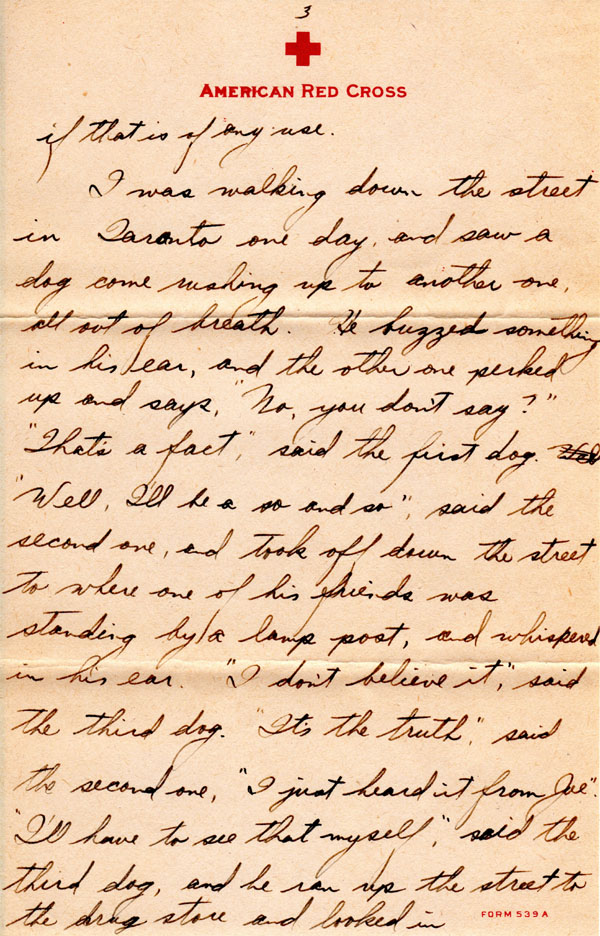 3
AMERICAN RED CROSS
if that is of any use.
I was walking down the street
in Taranto one day, and saw a
dog come rushing up to another one,
all out of breath. He buzzed something
in his ear, and the other one perked
up and says, "No, you don't say?"
"That's a fact", said the first dog.
"Well, I'll be a so and so", said the
second one, and took off down the street
to where one of his friends was
standing by a lamp post, and whispered
in his ear. "I don't believe it", said
the third dog. "It's the truth", said
the second one, "I just heard it from Joe".
"I'll have to see that myself", said the
third dog, and he ran up the street to
the drug store and looked in
FORM 539 A